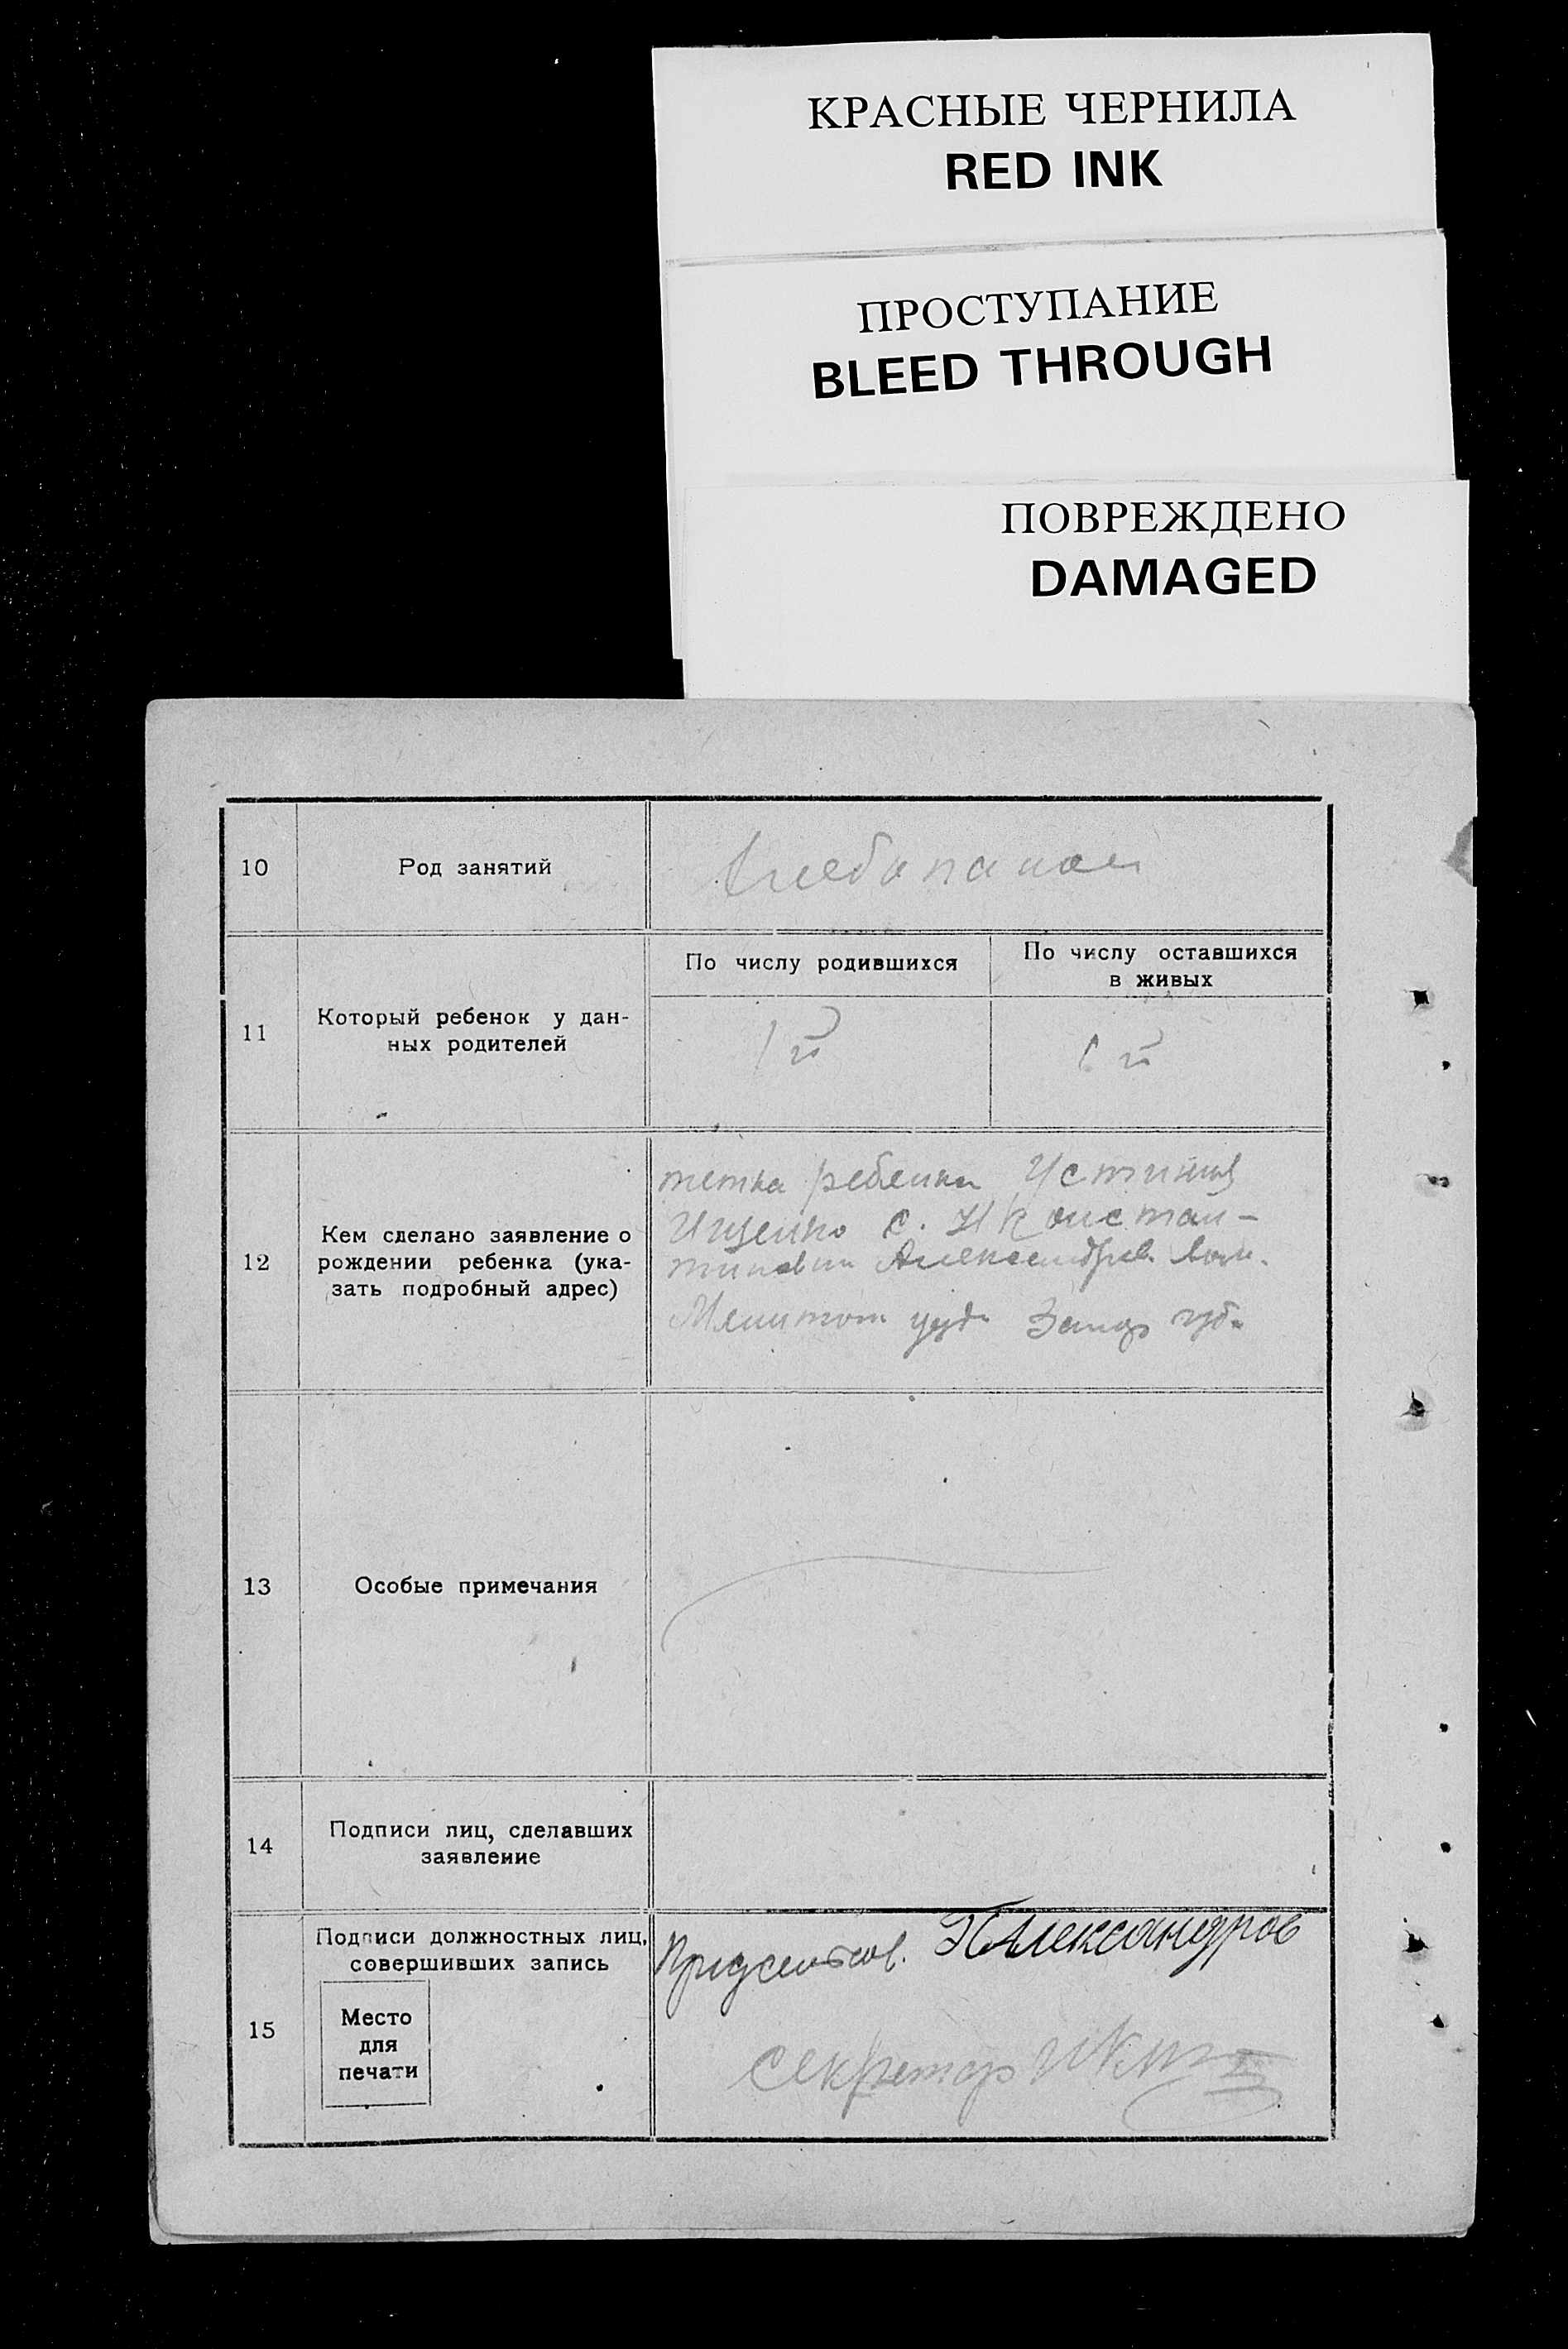 КРАСНЫЕ ЧЕРНИЛА
RED INK
ПРОСТУПАНИЕ
BLEED THROUGH
ПОВРЕЖДЕНО
DAMAGED
10
Род занятий
11
Который ребенок у дан-
ных родителей
По числу родившихся
По числу оставшихся
в живых
1й
1й
12
Кем сделано заявление о
рождении ребенка (ука-
зать подробный адрес)
тетка ребенка
Ищенко с. Н Констан-
тиновки Александров.
уезд. Запор губ.
13
Особые примечания
14
Подписи лиц, сделавших
заявление
15
Подписи должностных лиц,
совершивших запись
Место
для
печати
Александров
секретар